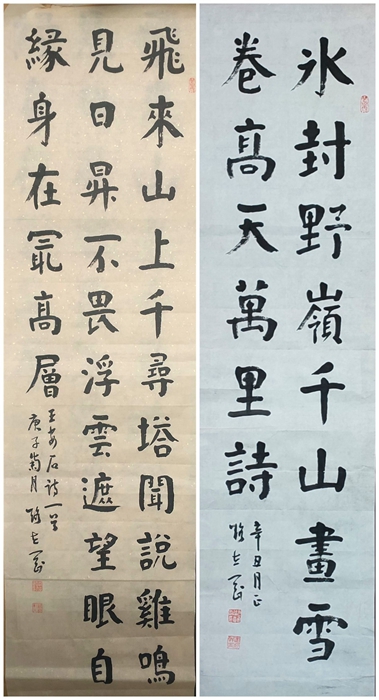 飛來山上千尋塔聞說雞鳴
見日昇不畏浮雲遮望眼自
緣身在冣髙層
王安石詩一首
庚子菊月
氷封野嶺千山畫雪
卷髙天萬里詩
辛丑月正